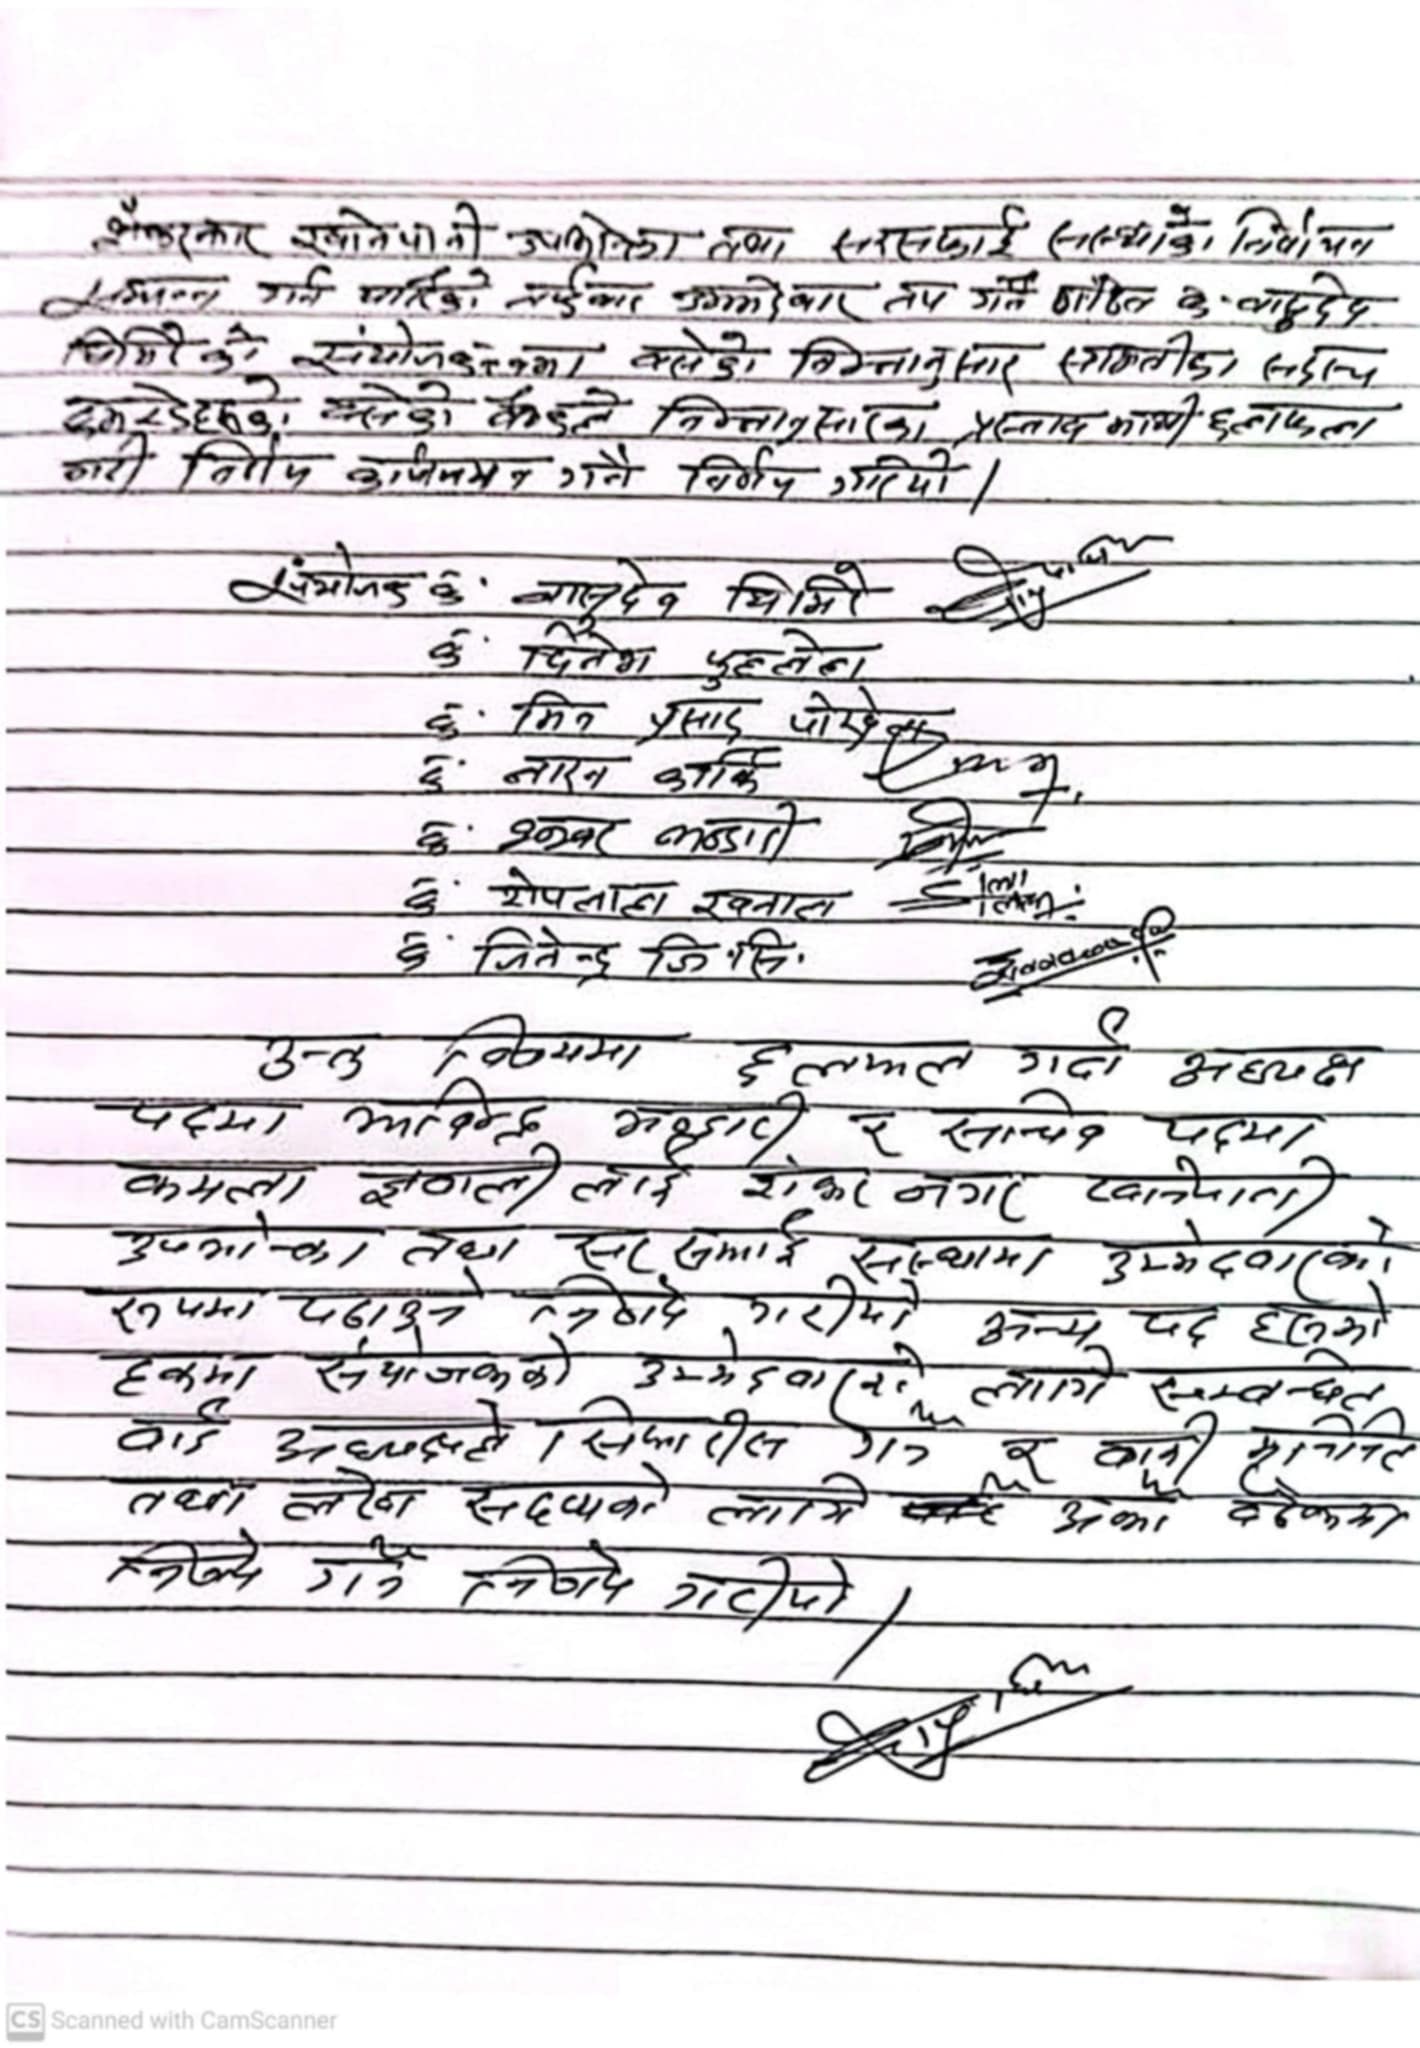 शंकरनगर खानेपानी उपभोक्ता तथा सरसफाई संस्थाको निर्वाचन
सम्पन्न गर्न पार्टीको तर्फबाट उम्मेदवार तय गर्न गठित क. वासुदेव
घिमिरेको संयोजकत्वमा बसेको निम्नानुसार समितीका सदस्य
कमरेडहरुको बसेको बैठकले निम्नानुसारका प्रस्ताव माथी छलफल
गरी निर्णय कार्यान्वयन गर्ने निर्णय गरियो।
संयोजक क. वासुदेव घिमिरे
क. दिनेश फुल्लेल
क. मित्र प्रसाद पोख्रेल
क. नारन कार्कि
क. शंकर भण्डारी
क. शेषलाल खनाल
क. जितेन्द्र जि.सि.
उक्त विषयमा छलफल गर्दा अध्यक्ष
पदमा भण्डारी र सचिव पदमा
कमला ज्ञवाली लाई शंकर नगर खानेपानी
उपभोक्ता तथा सरसफाई संस्थामा उम्मेदवारको
रुपमा पठाउने निर्णय गरीयो अन्य पद हरुको
हकमा संयोजकको उम्मेदवारको लागि सम्बन्धित
वार्ड अध्यक्षले सिफारीस गर्ने र बाकी
तथा लेखा सदस्यको लागि अर्को बैठकमा
निर्णय गर्ने निर्णय गरीयो।
CS Scanned with CamScanner